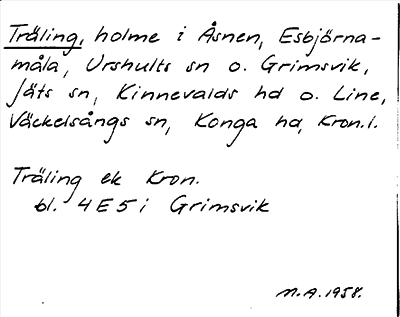 Träling, holme i Åsnen, Esbjörna-
måla, Urshults sn o. Grimsvik,
Jäts sn, Kinnevalds hd o. Line,
Väckelsångs sn, Konga hd, Kron.l.
Träling ek Kron.
bl. 4E5i Grimsvik
M.A. 1958.